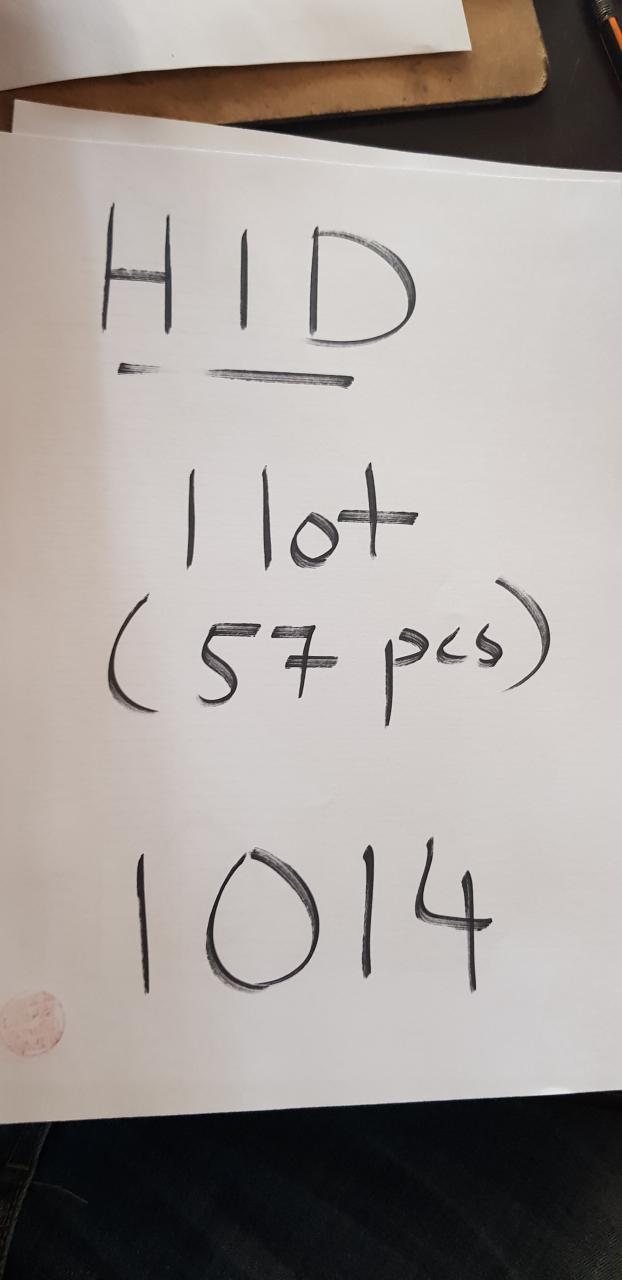 HID
1 lot
(57 pcs)
1014